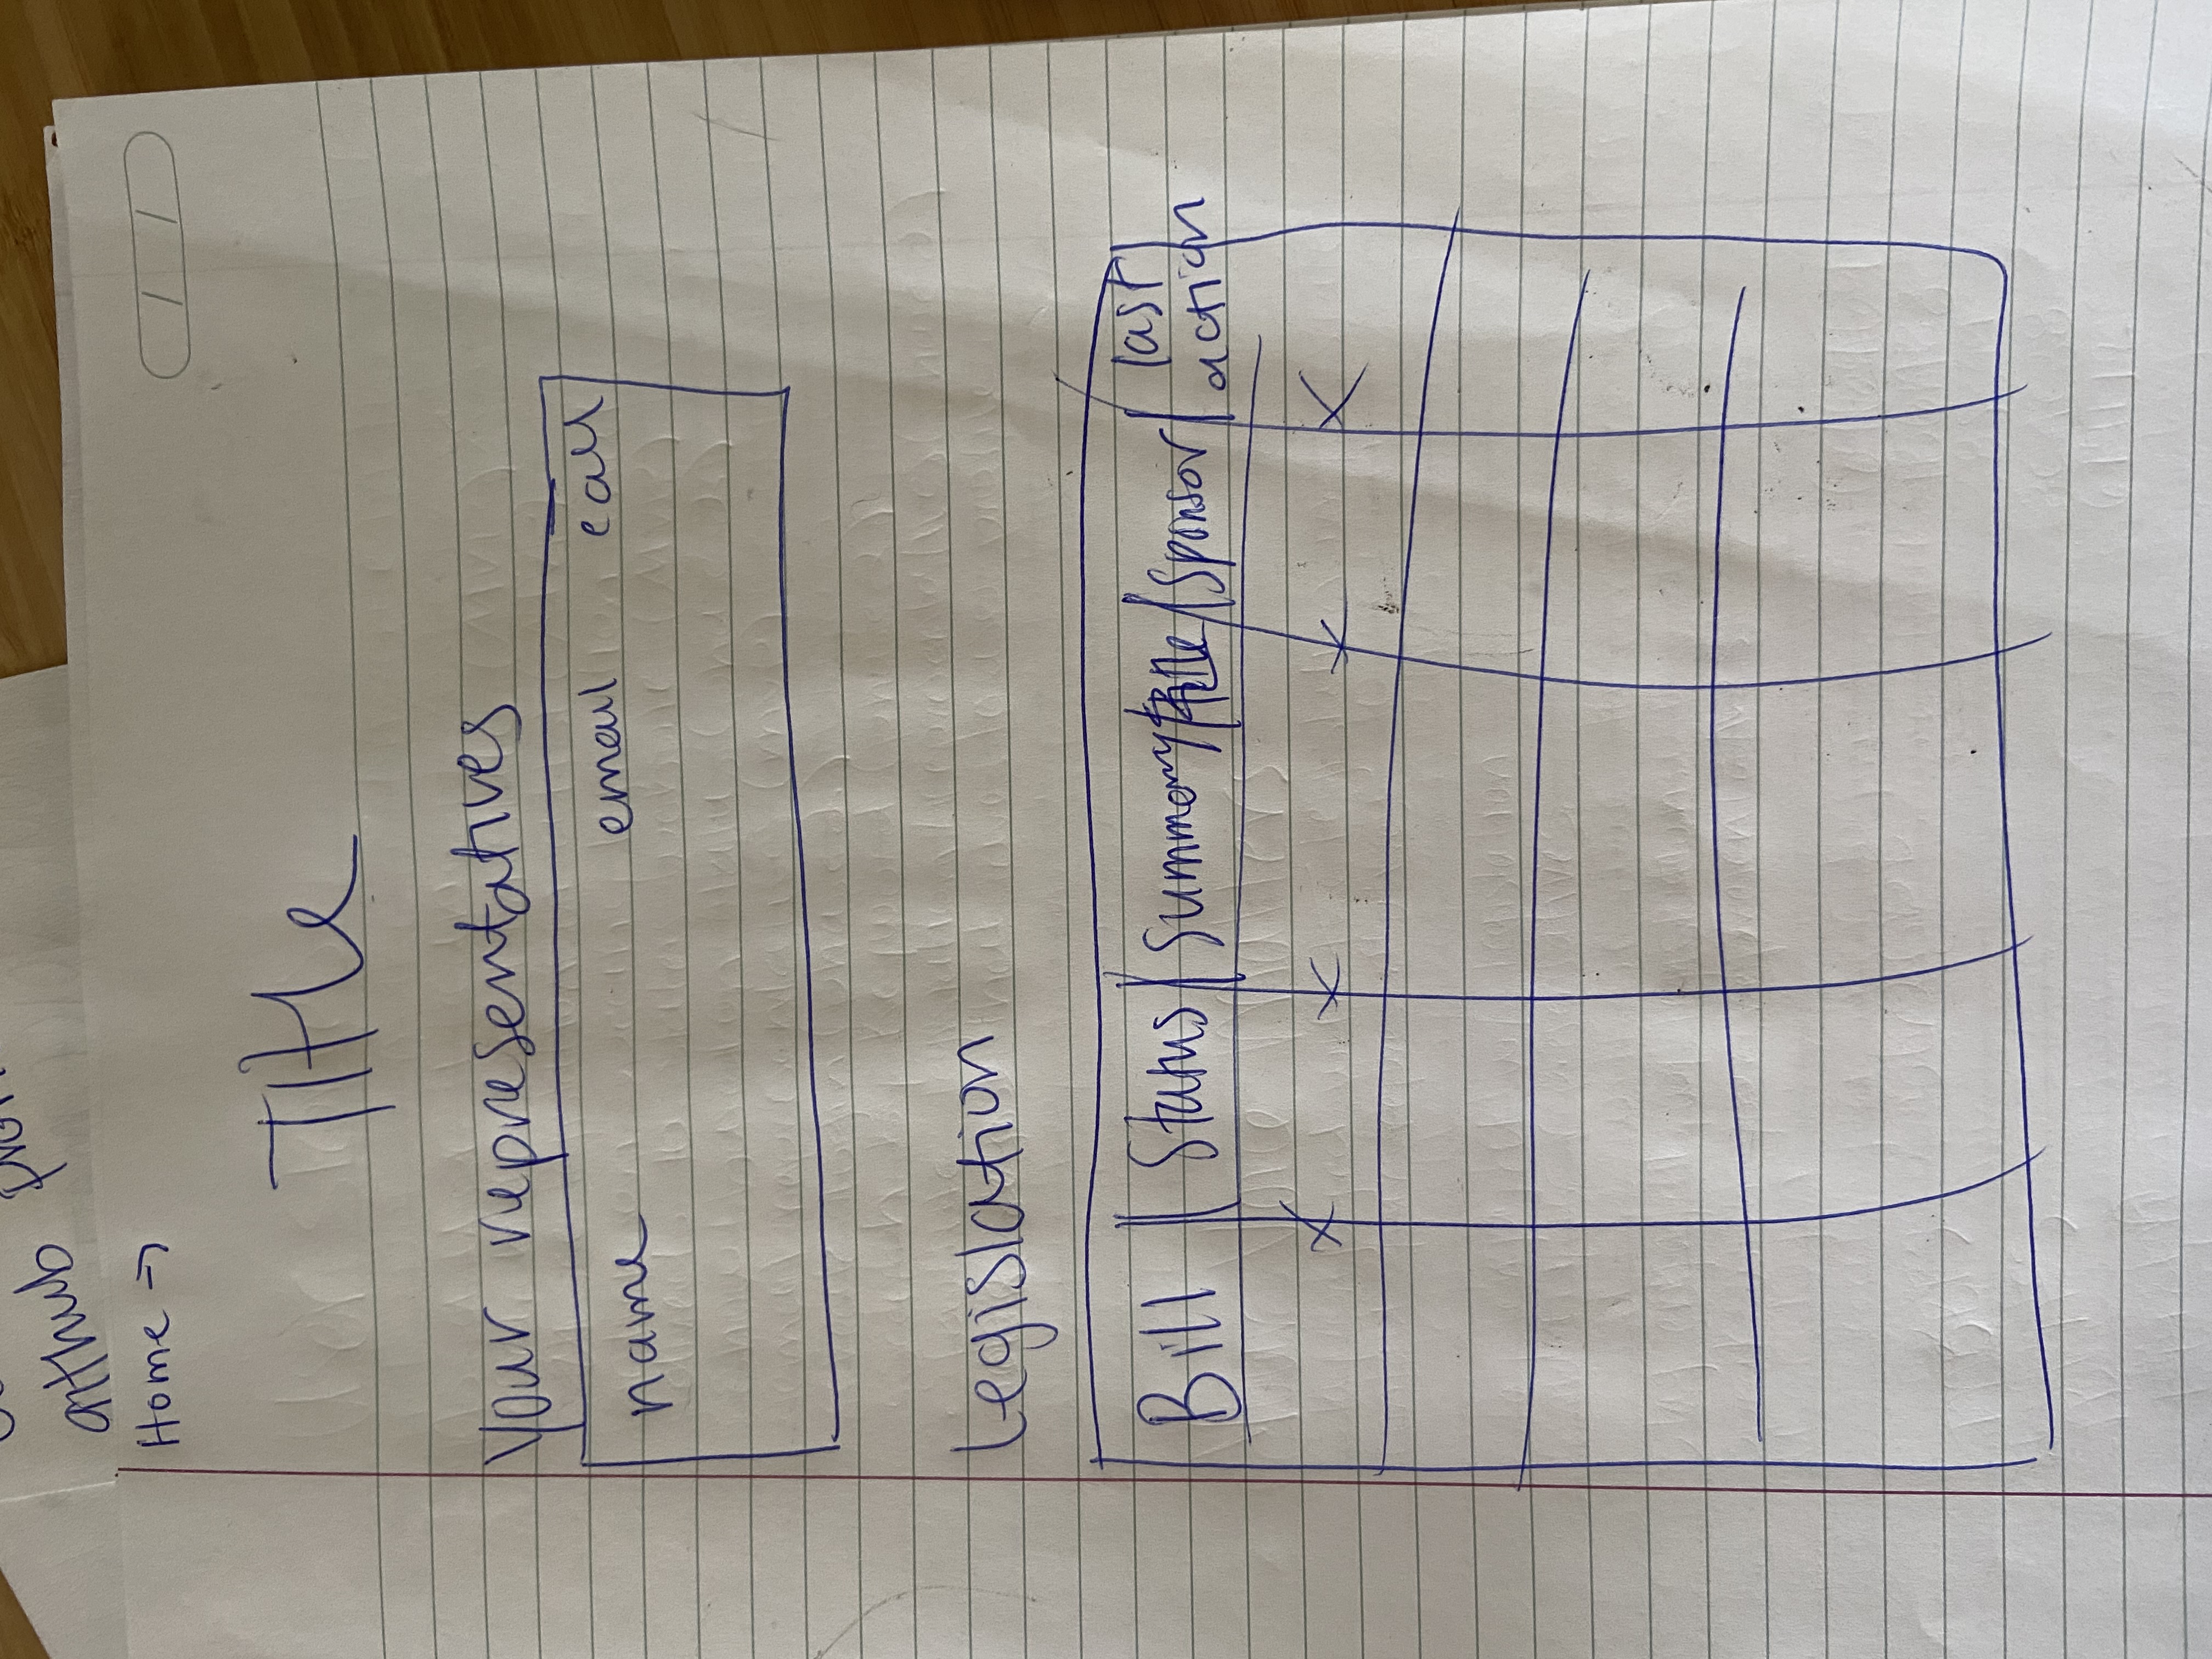 github
Home →
Title
Your representatives
name email call
Legislation
Bill Status Summary/title Sponsor last action